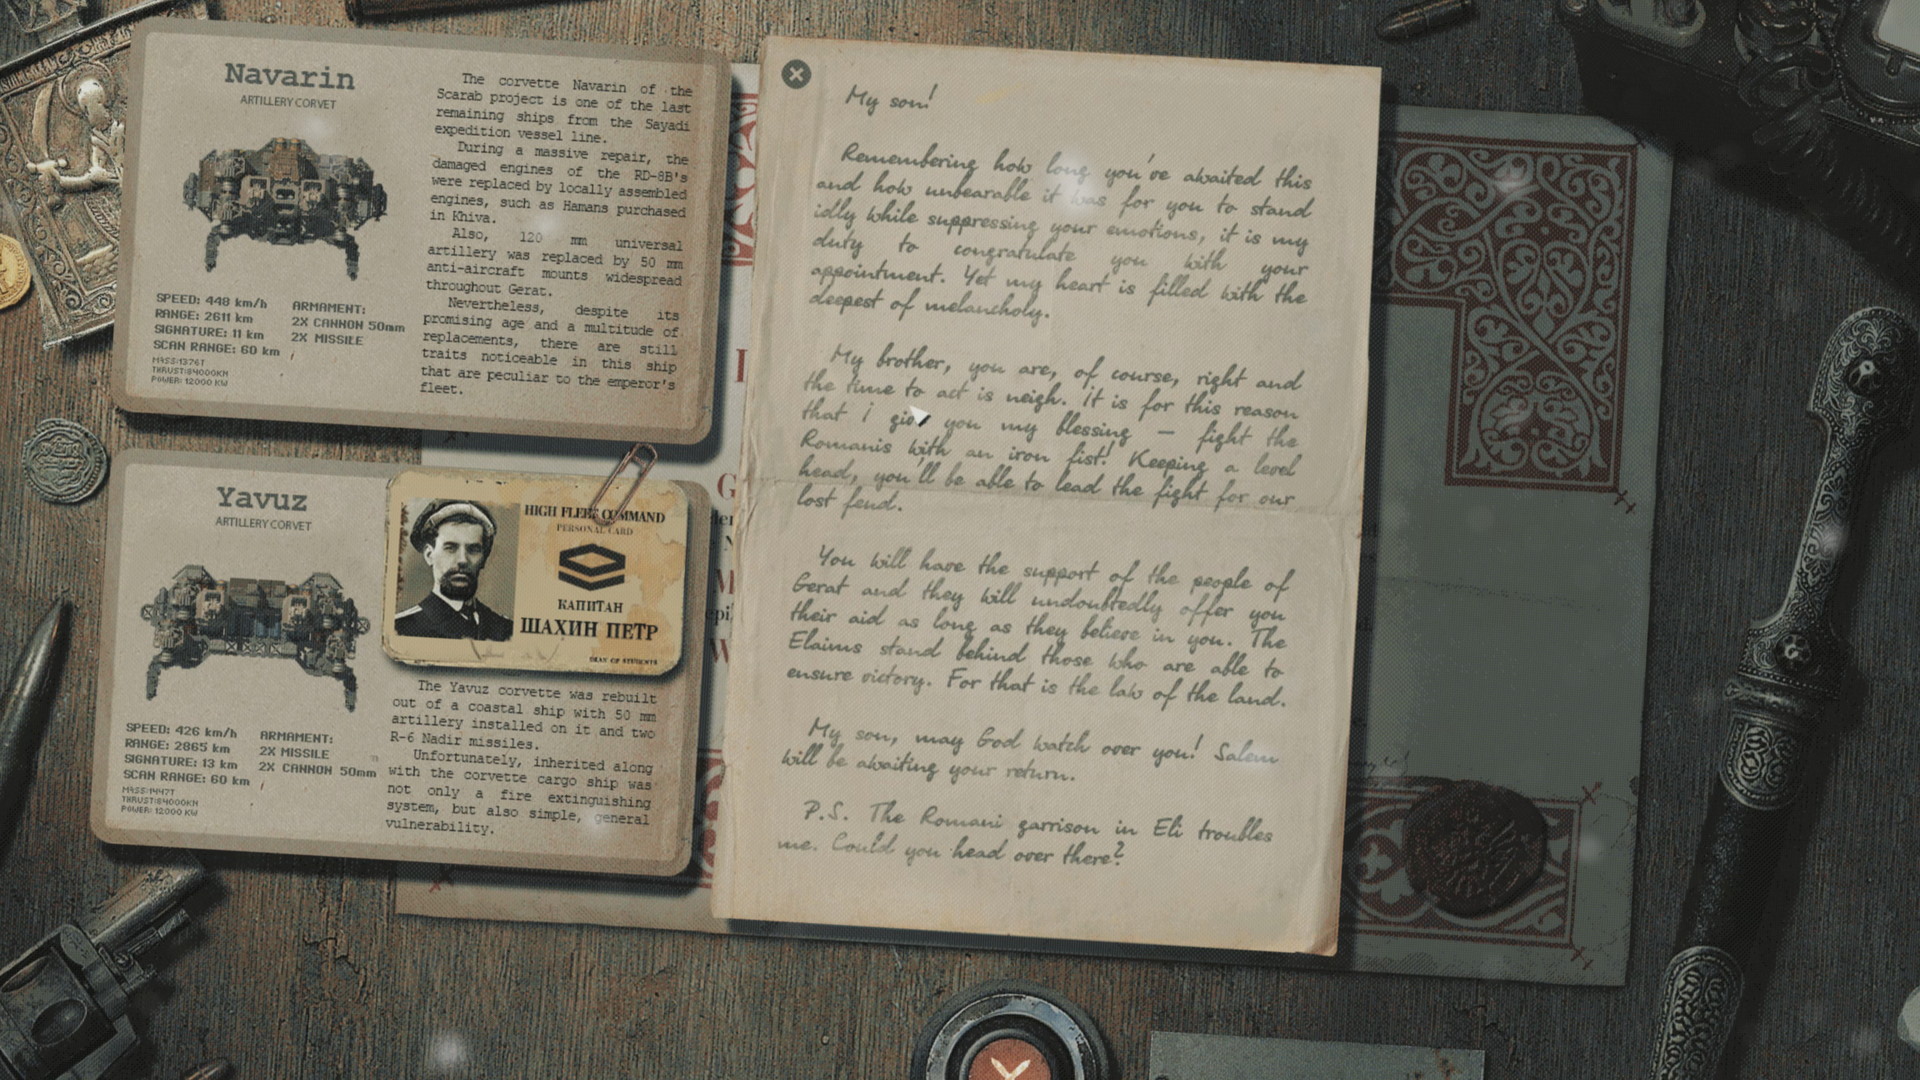 Navarin
ARTILLERY CORVET
SPEED: 448 km/h
RANGE: 2611 km
SIGNATURE: 11 km
SCAN RANGE: 60 km
MASS:1376T
THRUST:84000KN
POWER: 12000 KW
ARMAMENT:
2X CANNON 50mm
2X MISSILE
The corvette Navarin of the
Scarab project is one of the last
remaining ships from the Sayadi
expedition vessel line.
During a massive repair, the
damaged engines of the RD-8B's
were replaced by locally assembled
engines, such as Hamans purchased
in Khiva.
Also, 120 mm universal
artillery was replaced by 50 mm
anti-aircraft mounts widespread
throughout Gerat.
Nevertheless, despite its
promising age and a multitude of
replacements, there are still
traits noticeable in this ship
that are peculiar to the emperor's
fleet.
Yavuz
ARTILLERY CORVET
SPEED: 426 km/h
RANGE: 2865 km
SIGNATURE: 13 km
SCAN RANGE: 60 km
MASS:1447T
THRUST:84000KN
POWER: 12000 KW
ARMAMENT:
2X MISSILE
2X CANNON 50mm
HIGH FLEET COMMAND
PERSONAL CARD
КАПИТАН
ШАХИН ПЕТР
DEAN OF STUDENTS
The Yavuz corvette was rebuilt
out of a coastal ship with 50 mm
artillery installed on it and two
R-6 Nadir missiles.
Unfortunately, inherited along
with the corvette cargo ship was
not only a fire extinguishing
system, but also simple, general
vulnerability.
My son!
Remembering how long you've awaited this
and how unbearable it was for you to stand
idly while suppressing your emotions, it is my
duty to congratulate you with your
appointment. Yet my heart is filled with the
deepest of melancholy.
My brother, you are, of course, right and
the time to act is neigh. It is for this reason
that I give you my blessing — fight the
Romanis with an iron fist! Keeping a level
head, you'll be able to lead the fight for our
lost feud.
You will have the support of the people of
Gerat and they will undoubtedly offer you
their aid as long as they believe in you. The
Elaims stand behind those who are able to
ensure victory. For that is the law of the land.
My son, may God watch over you! Salem
will be awaiting your return.
P.S. The Romani garrison in Eli troubles
me. Could you head over there?